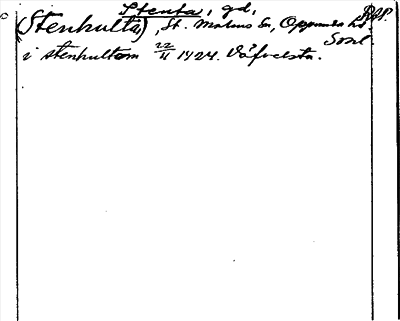 Stenta, gd, RAP.
(Stenhulta), St. Malms sn, Oppunda hd
Söd.
i stenhultom 22/11 1424. Våfvelsta.